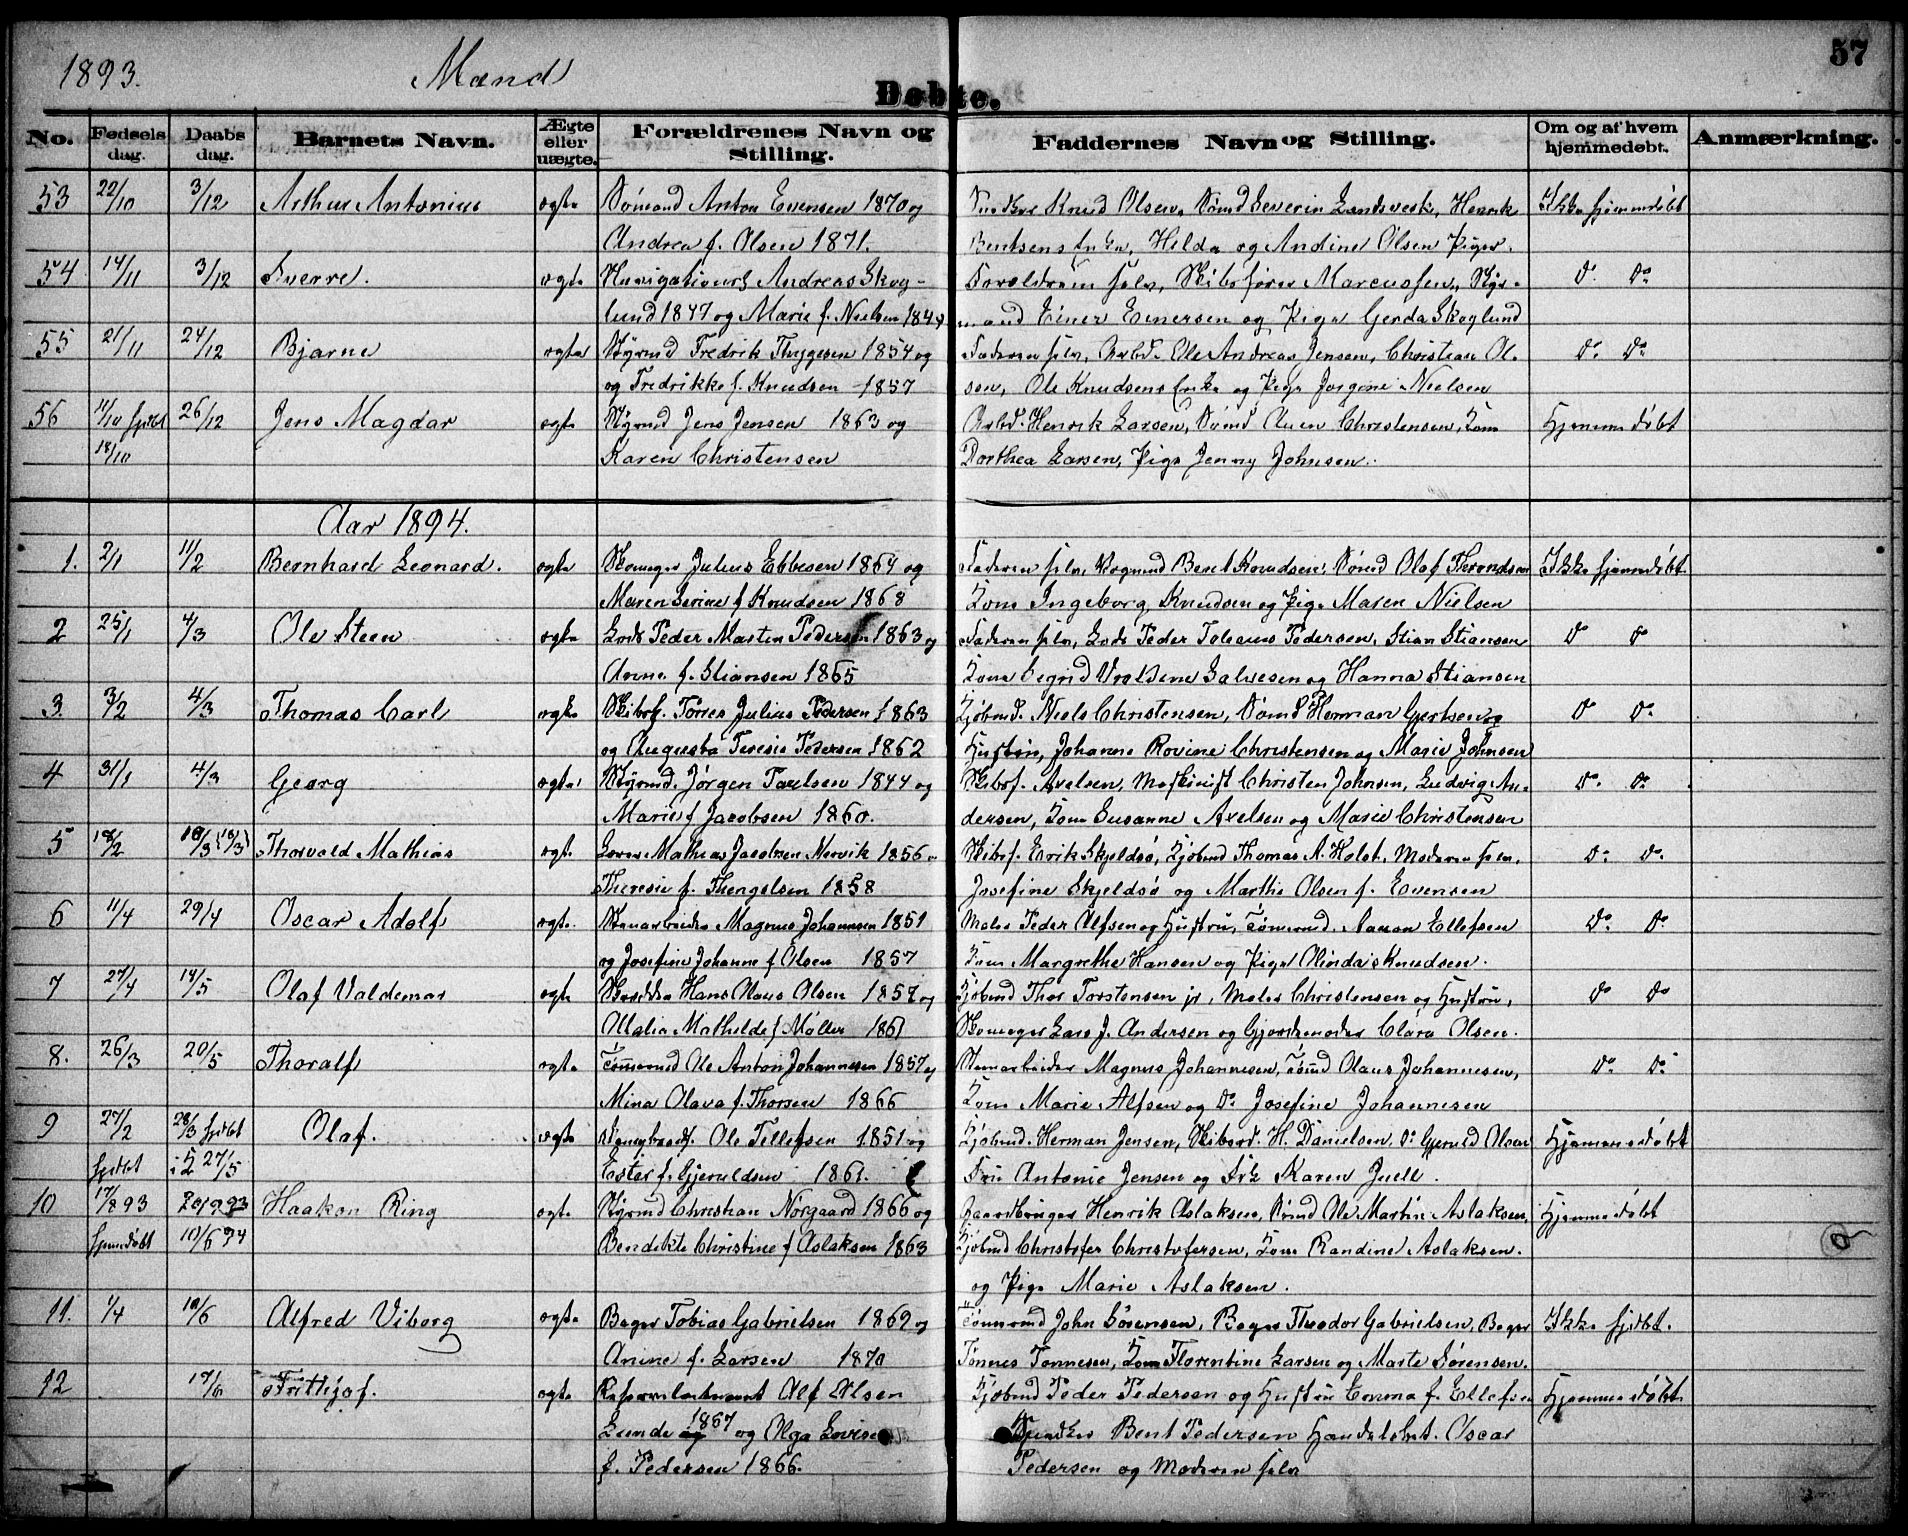 1893. Mænd
57
Døbte.
No. Fødsels dag. Daabs dag. Barnets Navn. Ægte eller uægte. Forældrenes Navn og Stilling. Faddernes Navn og Stilling. Om og af hvem hjemmedøbt. Anmærkning.
53 22/10 3/12 Arthur Antonius ægte Sømand Anton Evensen 1870 og Knud Olsen, Sømd Severin Landsverk, Henrik Ikke hjemmedøbt
Andrea f. Olsen 1871. Bentsens Enke, Helda og Andine Olsen Piger.
54 14/11 3/12 Sverre. ægte Andreas Skog- Forældrene selv, Skibsfører Marcussen, Styr-  do do
lund 1847 og Marie f. Nielsen mand Einer Einersen og Pige Gerda Skoglund
55 21/11 24/12 Bjarne ægte Styrmd Fredrik Thygesen 1854 og Faderen selv, Arbd. Ole Andreas Jensen, Christian Ol- do do
og Fredrikke f. Knudsen 1857 sen, Ole Knudsens Enke og Pige Jorgine Nielsen
56 11/10 hjdbt 26/12 Jens Magdar ægte Styrmd Jens Jensen 1863 og Arbd. Henrik Larsen, Sømd Auen Christensen, Kone Hjemmedøbt
18/10 Karen Christensen Dorthea Larsen, Pige Jenny Johnsen.
Aar 1894.
1. 2/1 11/2 Bernhard Leonard. ægte Skomager Julius Ebbesen 1864 og Faderen selv, Vognmd Bent Knudsen, Sømd Olaf Therondsen Ikke hjemmedøbt
Maren Serine f Knudsen 1868 Kone Ingeborg Knudsen og Pige Maren Nielsen
2 25/1 4/3 Ole Steen ægte Lods Peder Martin Pedersen 1863 og Faderen selv, Lods Peder Toleaus Pedersen, Stian Stiansen do do
Anne f. Stiansen 1865 Kone Sigrid Vroldsine Galvesen og Hanna Stiansen
3. 3/2 4/3 Thomas Carl ægte Skibsf. Torres Julius Pedersen f 1863 Kjøbmd. Niels Christensen, Sømd Herman Gjertsen og do do
og Augusta Teresie Pedersen 1862 Hustru, Johanne Rovine Christensen og Marie Johnsen
4 31/1 4/3 Georg ægte Styrmd. Jørgen Paulsen 1844 og Skibsf. Axelsen, Maskinist Christen Johnsen, Ludvig An- do do
Marie f Jacobsen 1860. dersen, Kone Susanne Axelsen og Marie Christensen
5 18/2 18/3 (18/3) Thorvald Mathias ægte Mathias Jacobsen Nervik 1856 Skibsf. Erik Skjeldsø, Kjøbmd Thomas A. Holst, Moderen selv, do do
Theresie f. Thengelsen 1858 Josefine Skjeldsø og Marthe Olsen f. Evensen
6 11/4 29/4 Oscar Adolf ægte Stenarbeider Magnus Johannesen 1851 Maler Peder Alfsen og Hustru, Tømmermd. Nanan Ellefsen do do
og Josefine Johanne f Olsen 1857 Kone Margrethe Hansen og Pige Olinda Knudsen.
7 27/4 14/5 Olaf Valdemar ægte Hans Olaus Olsen og Kjøbmd Thor Torstensen jr, Maler Christensen og Hustru, do do
Malia Mathilde f Møller 1861 Skomager Lars J. Andersen og Gjordemoder Clara Olsen.
8. 26/3 20/5 Thoralf ægte Tømmermd Ole Anton Johannesen 1857 og Stenarbeider Magnus Johannesen, Tømd Olaus Johannesen, do do
Mina Olava f. Thorsen 1866 Kone Marie Alfsen og do Josefine Johannesen
9 27/2 28/3 hjdbt Olaf. ægte Ole Tellefsen 1851 og Kjøbmd. Herman Jensen, H. Danielsen, do Gjeruld Olsen Hjemmedøbt
hjdbt i S 27/5 Ester f. Gjeruldsen 1861. Fru Antonie Jensen og Frk Karen Juell.
10 17/8 93 20/9 93 Haakon Ring ægte Styrmd Christian Nörgaard 1866 og Gaardbruger Henrik Aslaksen, Sømd Ole Martin Aslaksen, Hjemmedøbt
hjemdøbt 10/6 94 Bendikte Christine f Aslaksen 1863 Kjøbmd Christofer Christofersen, Kone Randine Aslaksen.
og Pige Marie Aslaksen.
11. 1/4 10/6 Alfred Viborg ægte Bager Tobias Gabrielsen 1869 og Tømmermd John Sörensen, Bager Theodor Gabrielsen, Bager Ikke hjdbt.
Anine f. Larsen 1870 Tønnes Tonnesen, Kone Florentine Larsen og Marte Sørensen.
12 17/6 Frithjof. ægte Alf Olsen Kjøbmd Peder Pedersen og Hustru Emma f. Ellefsen Hjemmedøbt
Lunde 1867 og Olga Lovise Snedker Bent Pedersen Oscar
f. Pedersen 1866. Pedersen og Moderen selv